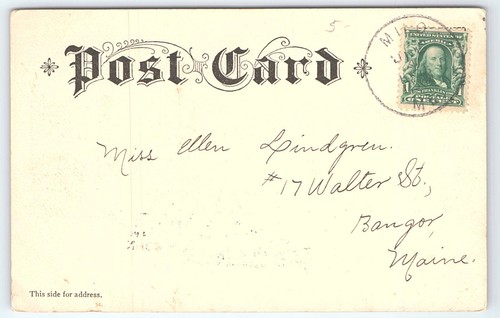 5
Post Card
Miss Ellen Lindgren.
#17 Walter St.,
Bangor,
Maine.
This side for address.